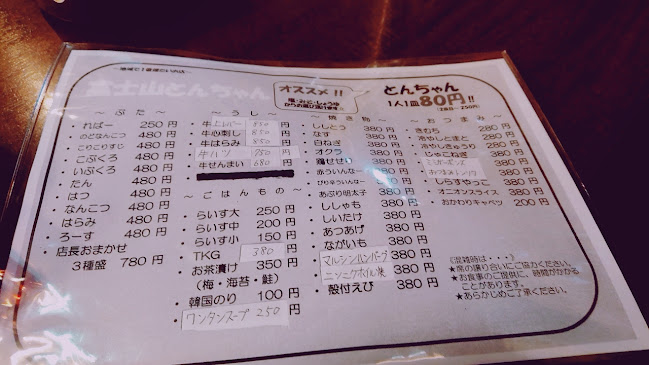 富士山とんちゃん
オススメ!!
塩・みそ・しょうゆ
からお選び頂けます
とんちゃん
1人1皿80円!!
～ぶた～
・ればー 250円
・のどなんこつ 480円
・こりこりすじ 480円
・こぶくろ 480円
・いぶくろ 480円
・たん 480円
・はつ 480円
・なんこつ 480円
・はらみ 480円
・ろーす 480円
・店長おまかせ
3種盛 780円
～うし～
・牛上レバー 850円
・牛心刺し 850円
・牛はらみ 850円
・牛ハツ
・牛せんまい 680円
～ごはんもの～
・らいす大 250円
・らいす中 200円
・らいす小 150円
・TKG 380円
・お茶漬け 350円
(梅・海苔・鮭)
・韓国のり 100円
・ワンタンスープ 250円
～焼き物～
・ししとう 380円
・なす 380円
・白ねぎ 380円
・オクラ 380円
・鶏せせり 380円
・赤ういんなー 380円
・ぴり辛ういんなー 380円
・あぶり明太子 380円
・ししゃも 380円
・しいたけ 380円
・あつあげ 380円
・ながいも 380円
・マルシンハンバーグ 380円
・ニンニクホイル焼 380円
・殻付えび 380円
～おつまみ～
・きむち 280円
・冷やしとまと 280円
・冷やしきゅうり 280円
・じゃこねぎ 380円
・しらすやっこ 380円
・オニオンスライス 380円
・おかわりキャベツ 200円
《混雑時は・・・》
★席の譲り合いにご協力ください。
★お食事のご提供に、時間がかかる
ことがあります。
★あらかじめご了承ください。